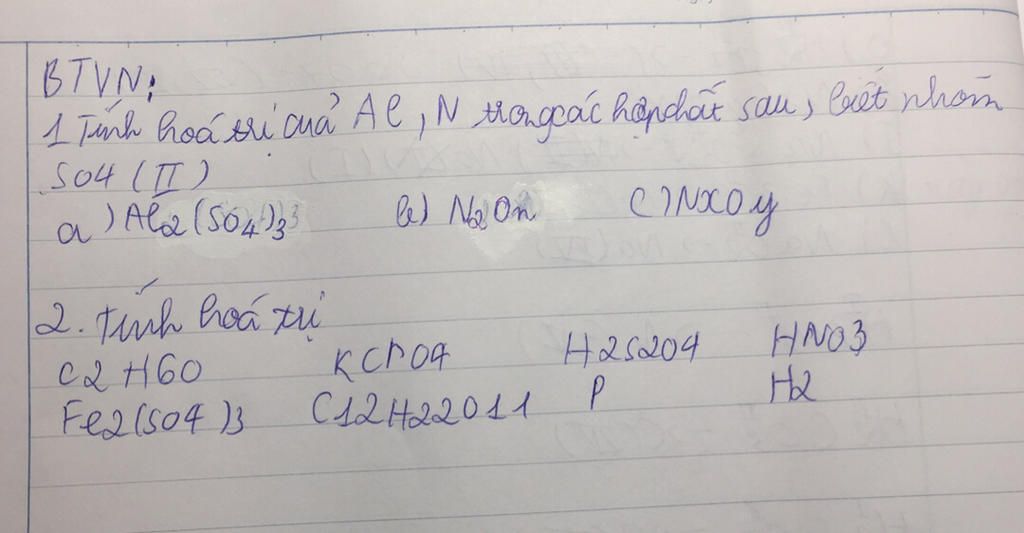 BTVN:
1 Tính hoá trị của Al, N trong các hợp chất sau, biết nhóm
SO4 (II)
a) Al2(SO4)3 b) N2On C) NXOy
2. Tính hoá trị
C2H6O KClO4 H2S2O4 HNO3
Fe2(SO4)3 C12H22O11 P H2